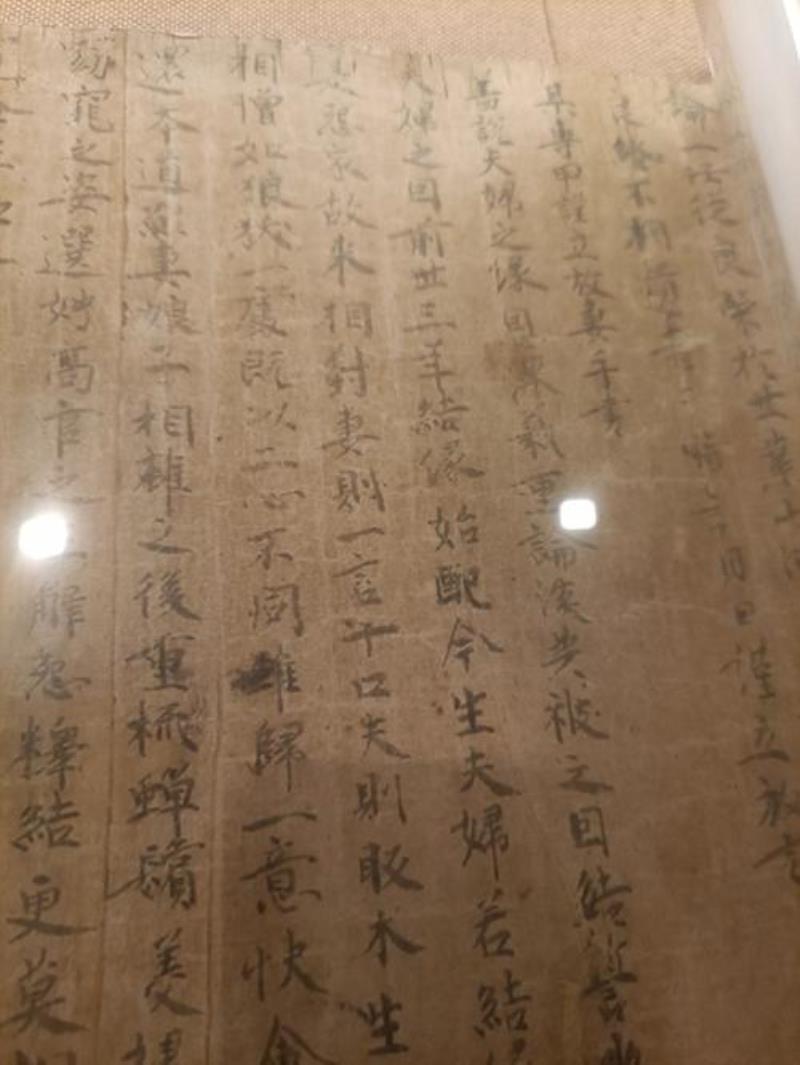 一 從良 於世業山河
不相 年 月日謹立放書
某專甲謹立放妻手書
蓋說夫婦之緣恩深義重論談共被之因結誓幽
夫婦之因前世三年結緣始配今生夫婦若結緣
怨家故來相對妻則一言十口夫則眅木生
相憎如狼犾一處既以二心不同難歸一意快會
還本道願妻娘子相離之後重梳蟬鬢美掃
窈窕之姿選娉高官之 解怨釋結更莫相